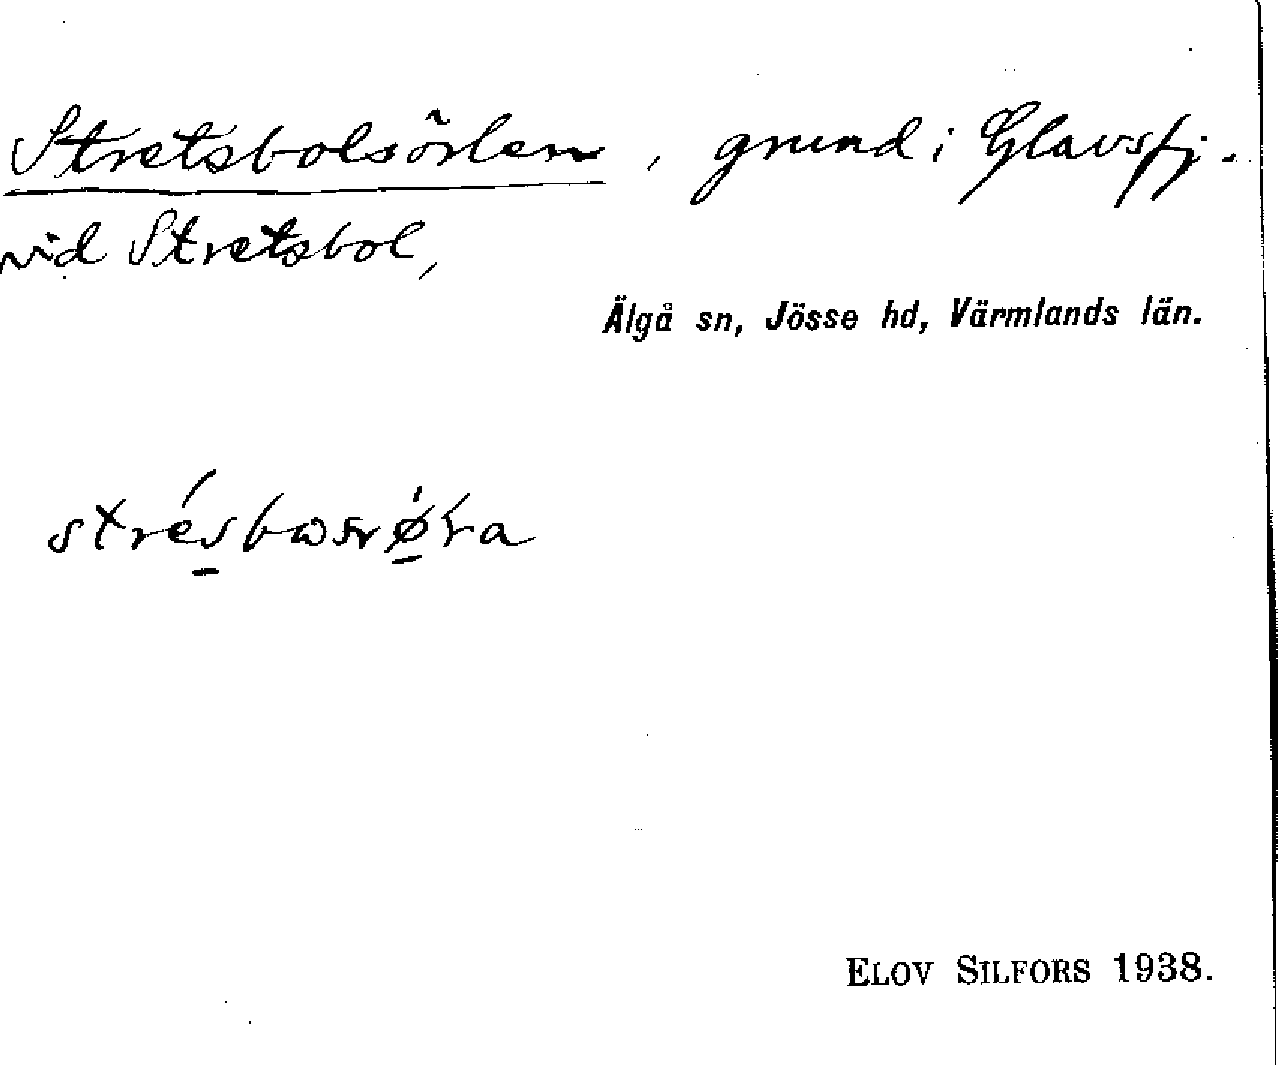 Stretsbolsörlen, grund i Glavsfj.
vid Stretsbol,
Älgå sn, Jösse hd, Värmlands län.
ELOV SILFORS 1938.